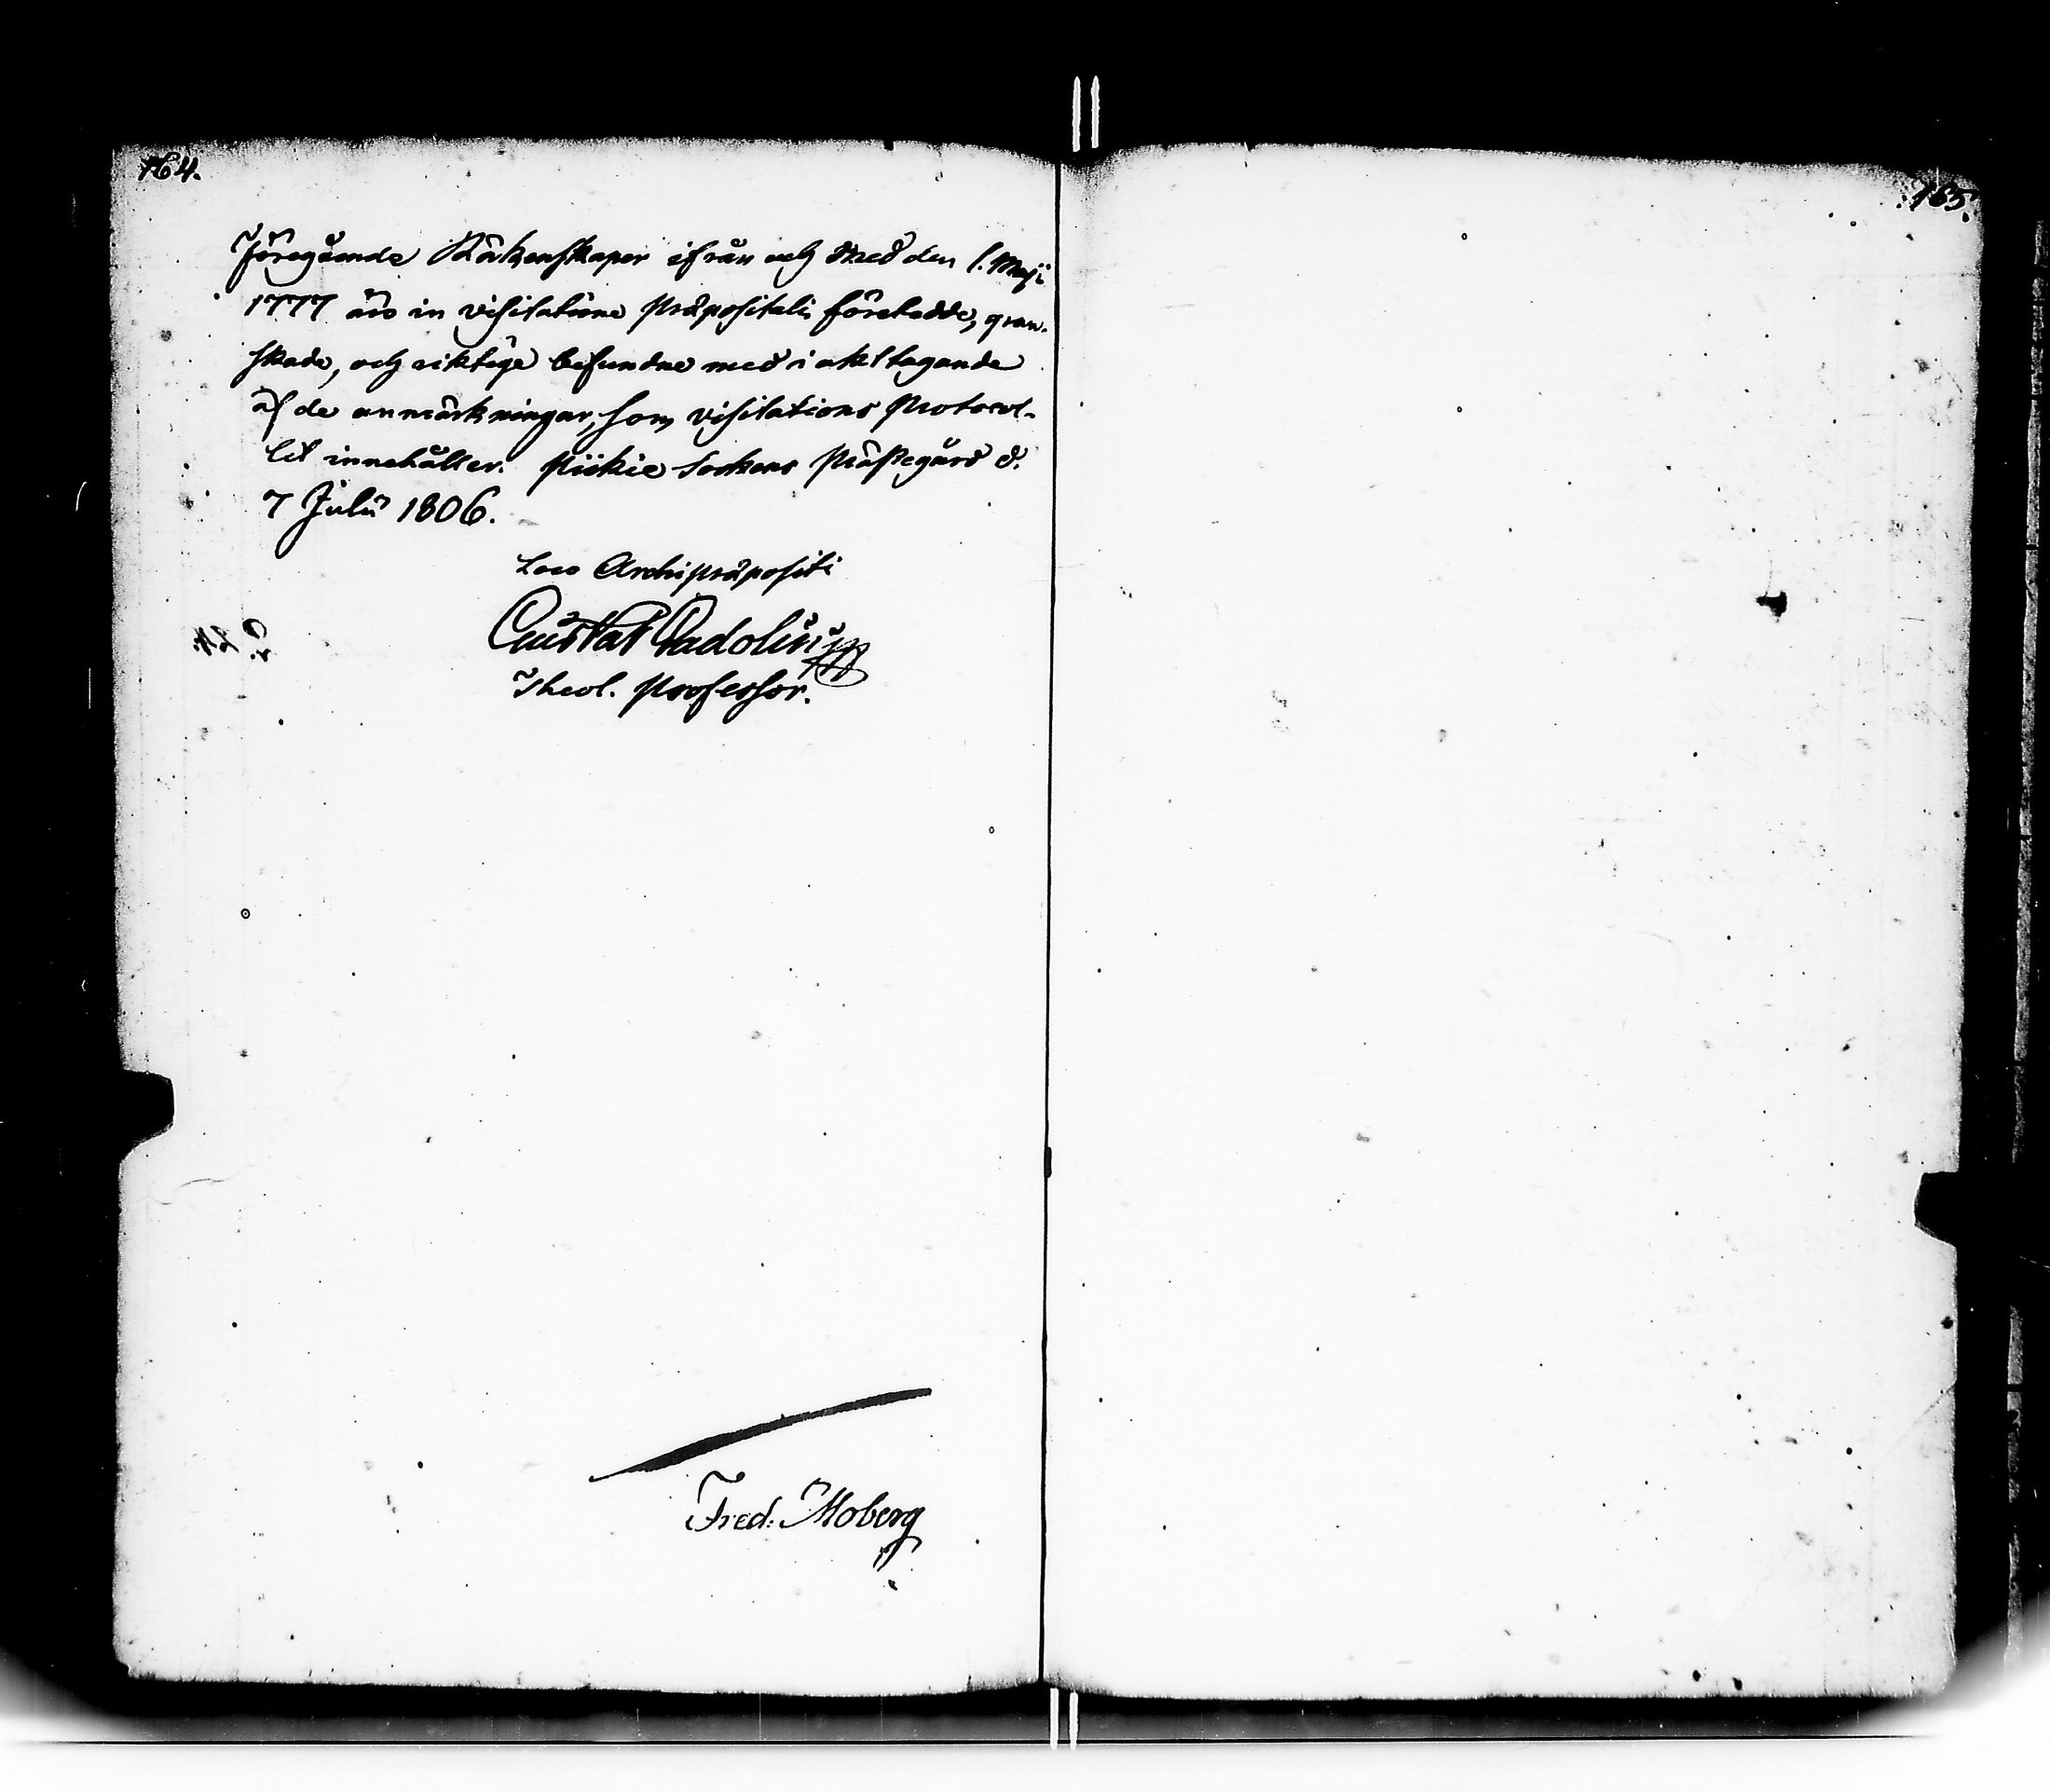 164.
Föregående Räkenskaper ifrån och med den 1. Maji
1777 äro in visitatione præpositali företedde, gran-
skade, och riktige befundne med i akttagande
af de anmärkningar, som visitations Protocol-
let innehåller. Piikie Sockens Prästegård d.
7 Julii 1806.
Loco Archipræpositi
Gustaf Gadolin
Theol. Professor.
Fred: Moberg
165.